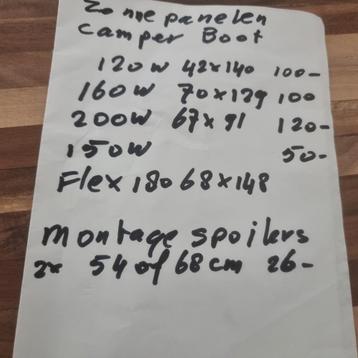 Zonnepanelen
camper Boot
120W 42x140 100-
160W 70x129 100
200W 67x91 120-
150W 50-
Flex 180 68x148
montage spoilers
2x 54 of 68 cm 26-